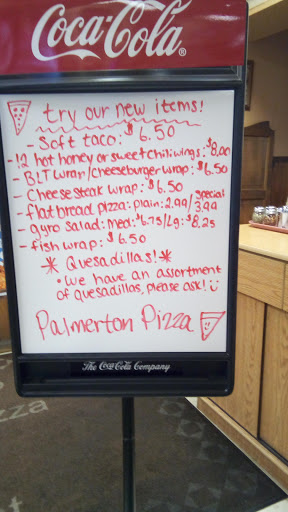 Coca-Cola®
try our new items!
- Soft taco: $6.50
- 12 hot honey or sweet chili wings: $8.00
- BLT wrap/cheeseburger wrap: $6.50
- Cheese steak wrap: $6.50
- flat bread pizza: plain: 2.99/ special 3.99
- gyro salad: med: $6.75/Lg: $8.25
- fish wrap: $6.50
* Quesadillas! *
• We have an assortment
of quesadillas, please ask! :)
Palmerton Pizza
The Coca-Cola Company